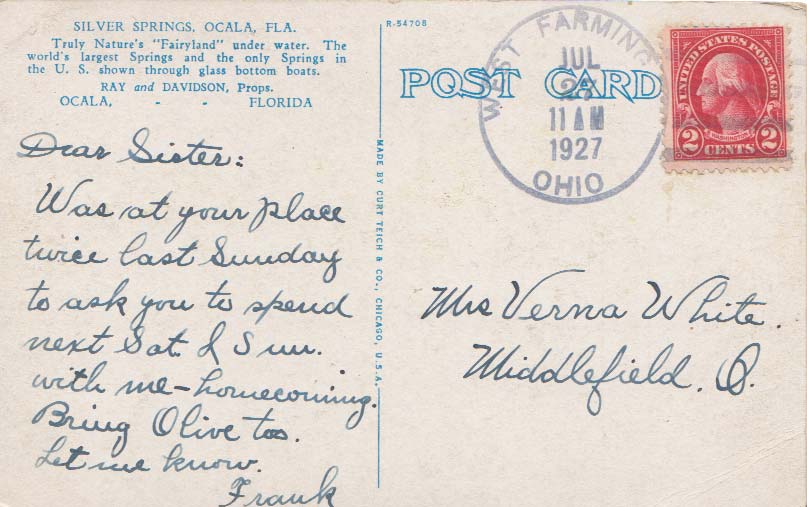 SILVER SPRINGS, OCALA, FLA.
Truly Nature's "Fairyland" under water. The
world's largest Springs and the only Springs in
the U. S. shown through glass bottom boats.
RAY and DAVIDSON, Props.
OCALA, - - FLORIDA
Dear Sister:
Was at your place
twice last Sunday
to ask you to spend
next Sat. & Sun.
with me-homecoming.
Bring Olive too.
Let me know.
Frank
MADE BY CURT TEICH & CO., CHICAGO, U.S.A.
R-54708
POST CARD
WEST FARMING
JUL
11 AM
1927
OHIO
UNITED STATES POSTAGE
WASHINGTON
2 CENTS 2
Mrs Verna White.
Middlefield. O.